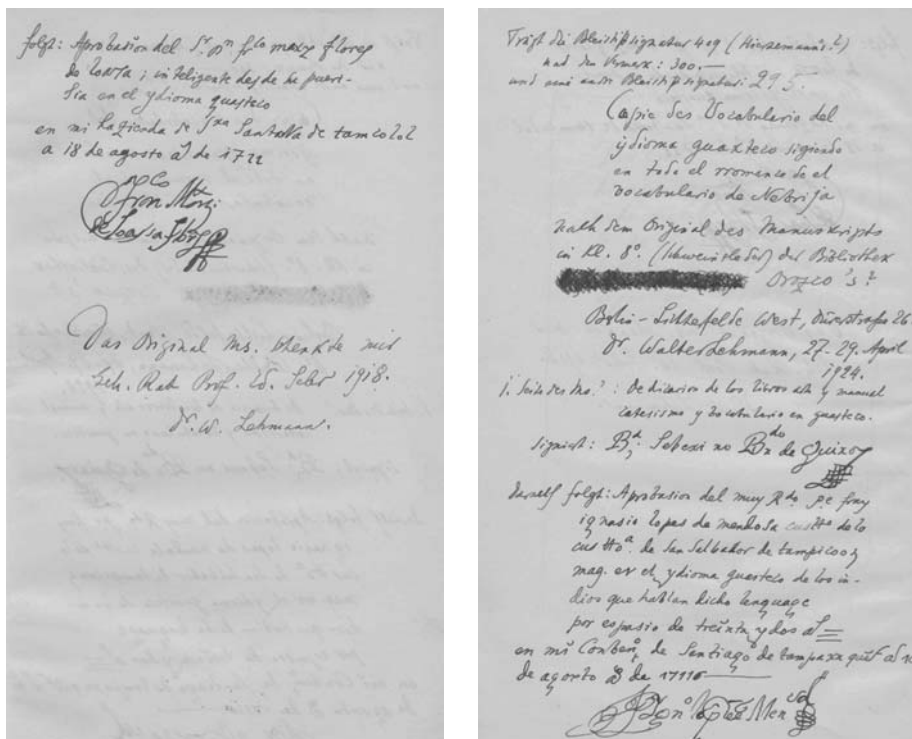 folgt: Aprobasion del Sr. Dn. frco marz flores
de loarsa; inteligente desde he pueri-
sia en el ydioma guasteco
en mi hazienda de Sta Santa de tamcolol
a 18 de agosto aŝ de 1722
Das Original Ms. schenkte mir
Geh. Rat Prof. Ed. Seler 1918.
Dr. W. Lehmann.
Trägt die Bleistiftsignatur 409 (Hiersemann?)
und den Vermerk: 300.—
und eine andre Bleistiftsignatur: 295.
Copie des Vocabulario del
ydioma guaxteco sigiendo
en todo el rromance de el
vocabulario de Nebrija
nach dem Original des Manuskripts
in Kl. 8°. (Schweinsleder) der Bibliothek
Orozco's?
Berlin-Lichterfelde West, Dürerstrasse 26
Dr. Walter Lehmann, 27-29. April
1924.
1. Seite des Ms.: Dedicasion de los livros arte y manual
catesismo y vocabulario en guasteco.
signiert: Br. Seberino Bndo de Quiros
darauf folgt: Aprobasion del muy Rdo pe fray
ignasio lopes de mendosa custto de lo
custtoa. de San Salbador de tampicoo y
mag. en el ydioma guasteco de los in-
dios que hablan dicho lenguage
por espasio de treinta y dos aŝ
en mi Conben, de Santiago de tampaxa
de agosto